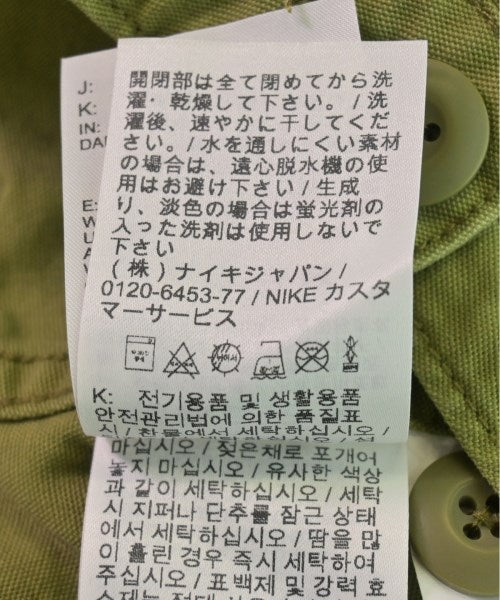 J:
K:
IN:
開閉部は全て閉めてから洗
濯・乾燥して下さい。/ 洗
濯後、速やかに干してくだ
さい。/ 水を通しにくい素材
の場合は、遠心脱水機の使
用はお避け下さい / 生成
り、淡色の場合は蛍光剤の
入った洗剤は使用しないで
下さい
(株) ナイキジャパン /
0120-6453-77 / NIKE カスタ
マーサービス
K: 전기용품 및 생활용품
안전관리법에 의한 품질표
마십시오 / 젖은채로 포개어
놓지 마십시오 / 유사한 색상
과 같이 세탁하십시오 / 세탁
시 지퍼나 단추를 잠근 상태
에서 세탁하십시오 / 땀을 많
이 흘린 경우 즉시 세탁하여
주십시오 / 표백제 및 강력 효